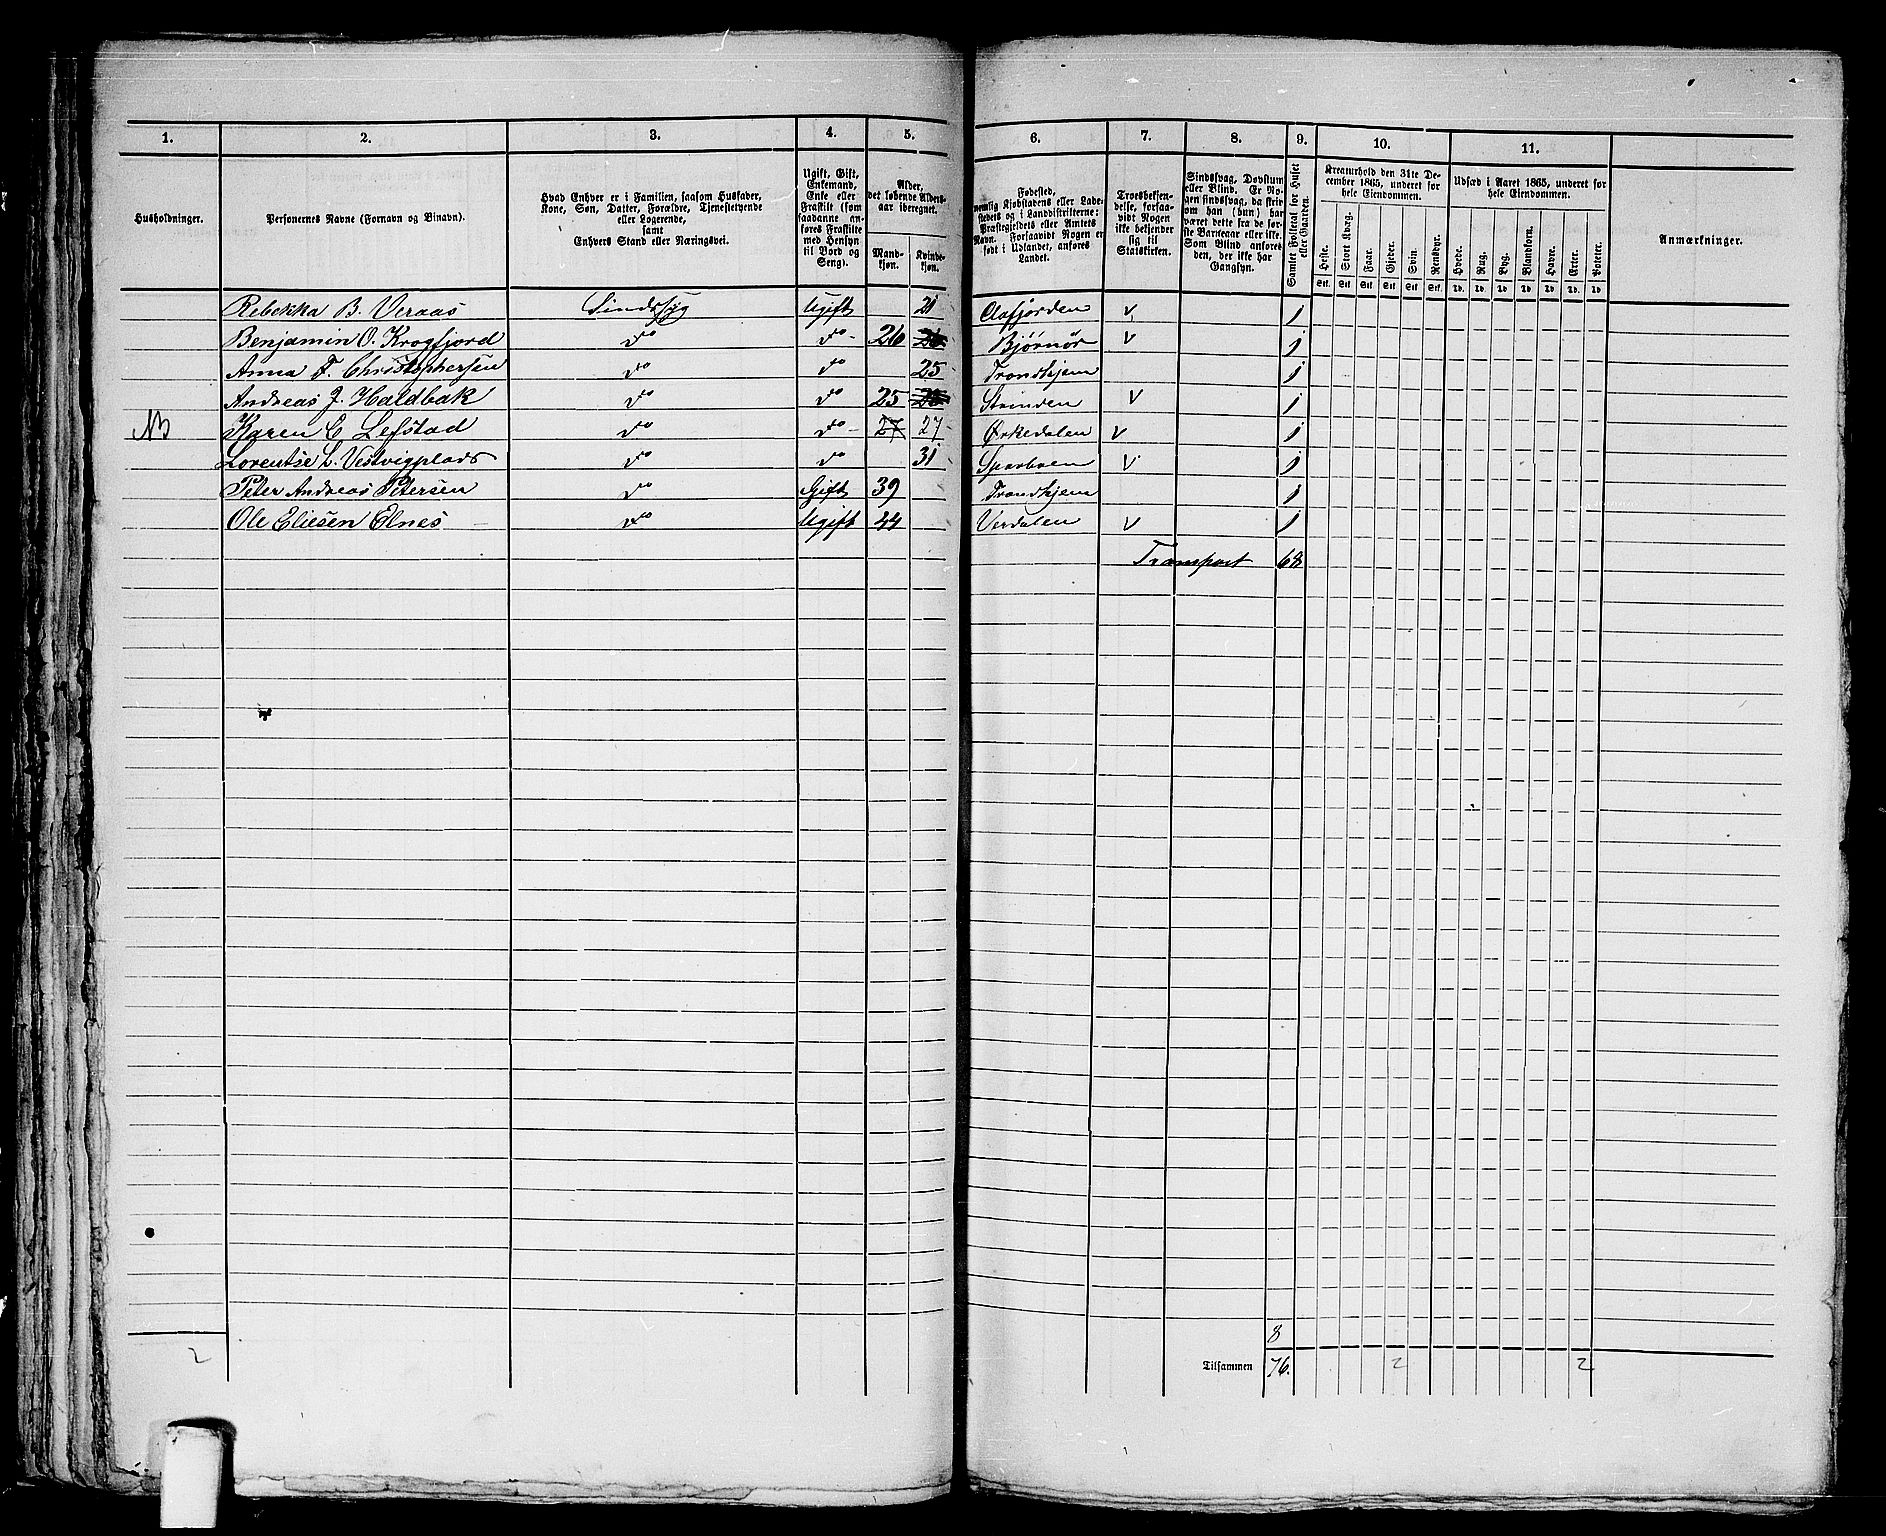 1. 2. 3. 4. 5. 6. 7. 8. 9. 10. 11.
Husholdninger.
Personernes Navne (Fornavn og Binavn).
Hvad Enhver er i Familien, saasom Husfader,
Kone, Søn, Datter, Forældre, Tjenestetyende
eller Logerende,
samt
Enhvers Stand eller Næringsvei.
Ugift, Gift,
Enkemand,
Enke eller
Fraskilt (som
saadanne an-
føres Fraskilte
med Hensyn
til Bord og
Seng).
Alder,
det løbende Alders-
aar iberegnet.
Mand-
kjøn.
Kvinde-
kjøn.
Fødested,
nemlig Kjøbstadens eller Lade-
stedets og i Landdistrikterne:
Præstegjeldets eller Amtets
Navn. Forsaavidt Nogen er
født i Udlandet, anføres
Landet.
Troesbekjen-
delse, forsaa-
vidt Nogen
ikke bekjender
sig til
Statskirken.
Sindssvag, Døvstum
eller Blind. Er No-
gen sindssvag, da skriv
om han (hun) har
været dette fra de før-
ste Barneaar eller ikke.
Som Blind anføres
den, der ikke har
Gangsyn.
Samlet Folketal for Huset
eller Gaarden.
Kreaturhold den 31te De-
cember 1865, underet for
hele Eiendommen.
Heste. Stort Kvæg. Faar. Gjeder. Svin. Rensdyr.
Stk. Stk Stk Stk Stk Stk.
Udsæd i Aaret 1865, underet for
hele Eiendommen.
Hvede. Rug. Byg. Blandkorn. Havre. Erter. Poteter.
Td. Td Td Td Td Td Td
Anmærkninger.
Rebekka B. Veraas Sindssyg Ugift 21 Aafjorden v 1
Benjamin O. Krogfjord do do 26 Bjørnør v 1
Anna F. Christophersen do do 25 Trondhjem 1
Andreas J. Haldbak do do 25 Strinden v 1
NB Karen E Lefstad do do 27 27 Ørkedalen v 1
Lorentse L. Vestvigplads do do 31 Sparboen v 1
Peter Andreas Petersen do Gift 39 Trondhjem 1
Ole Eliesen Elnes do Ugift 44 Verdalen v 1
Transport 68
8
2 Tilsammen 76. 2 2